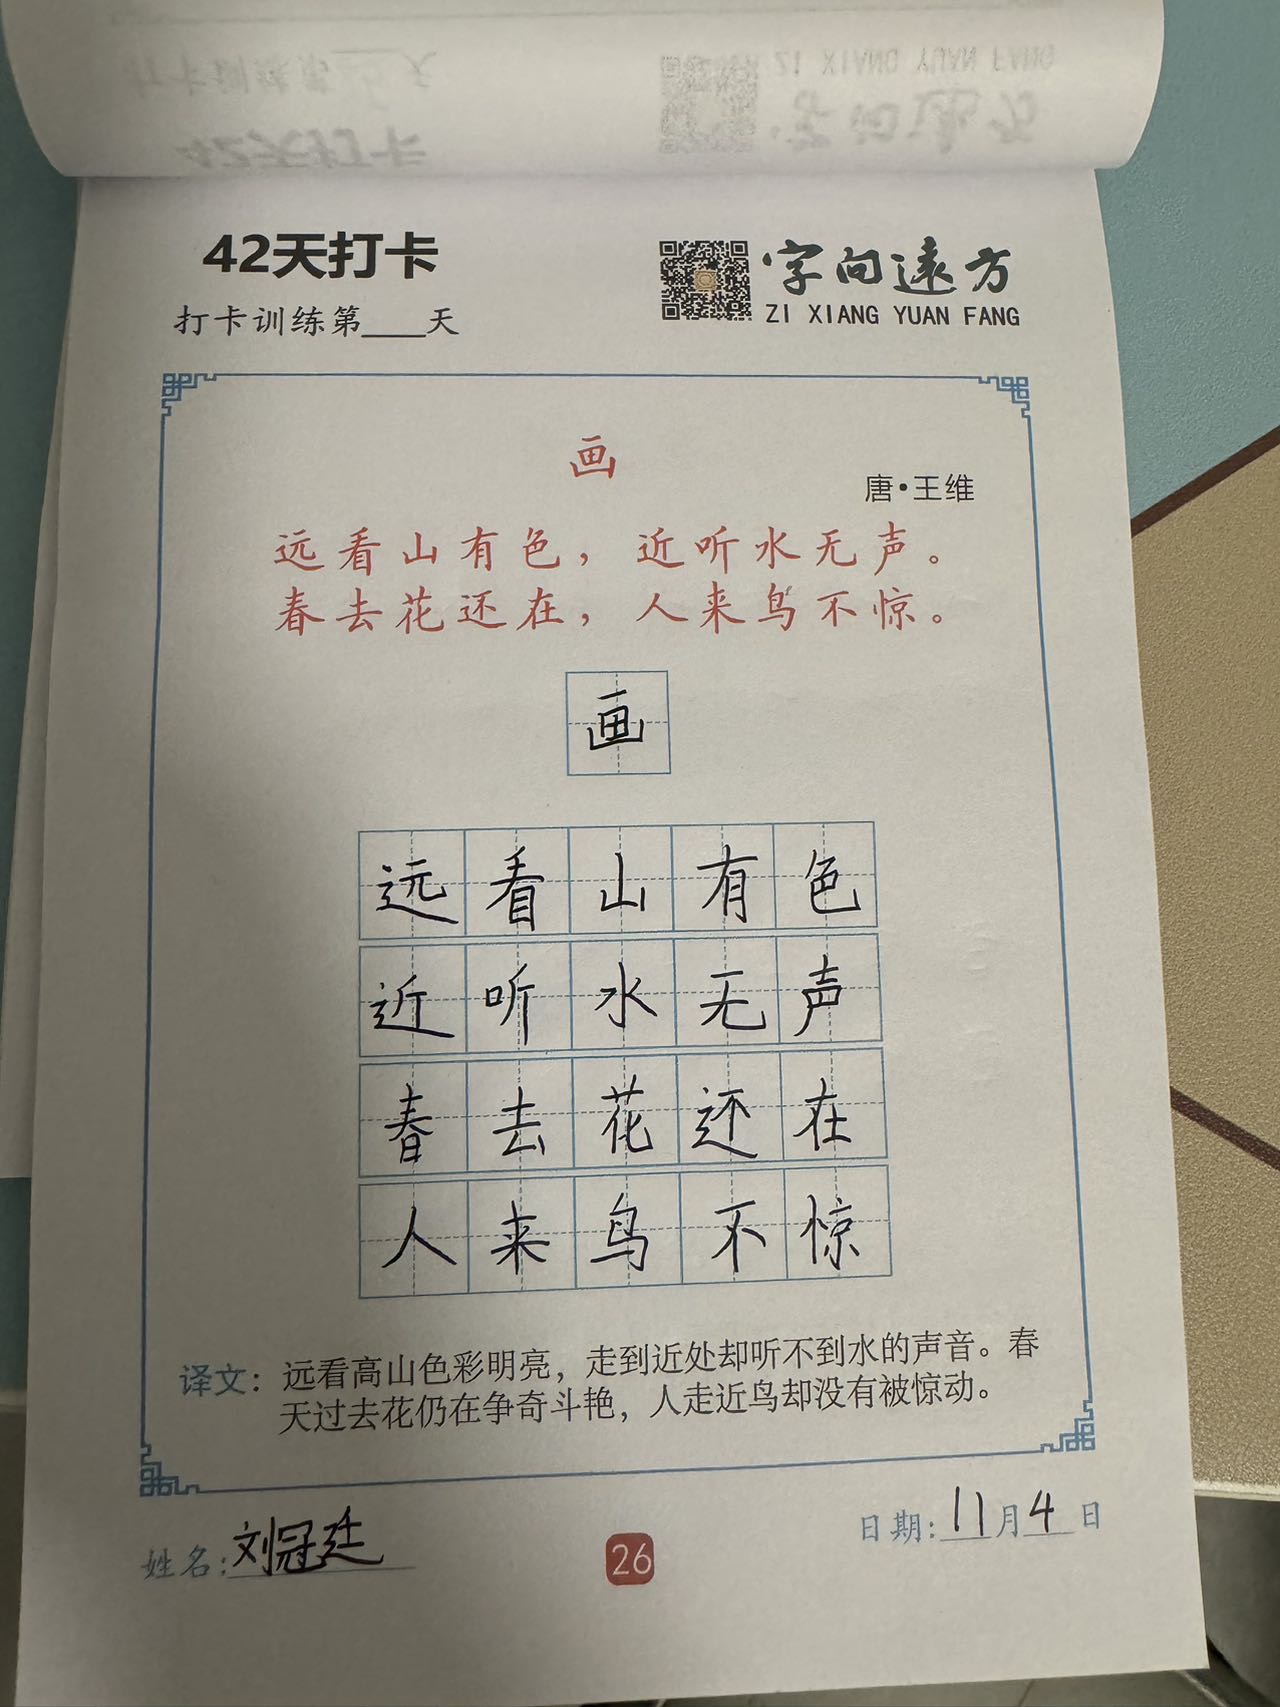 42天打卡
打卡训练第___天
字向遠方
ZI XIANG YUAN FANG
画
唐·王维
远看山有色，近听水无声。
春去花还在，人来鸟不惊。
画
远看山有色
近听水无声
春去花还在
人来鸟不惊
译文：远看高山色彩明亮，走到近处却听不到水的声音。春
天过去花仍在争奇斗艳，人走近鸟却没有被惊动。
姓名：刘冠廷
26
日期：11月4日